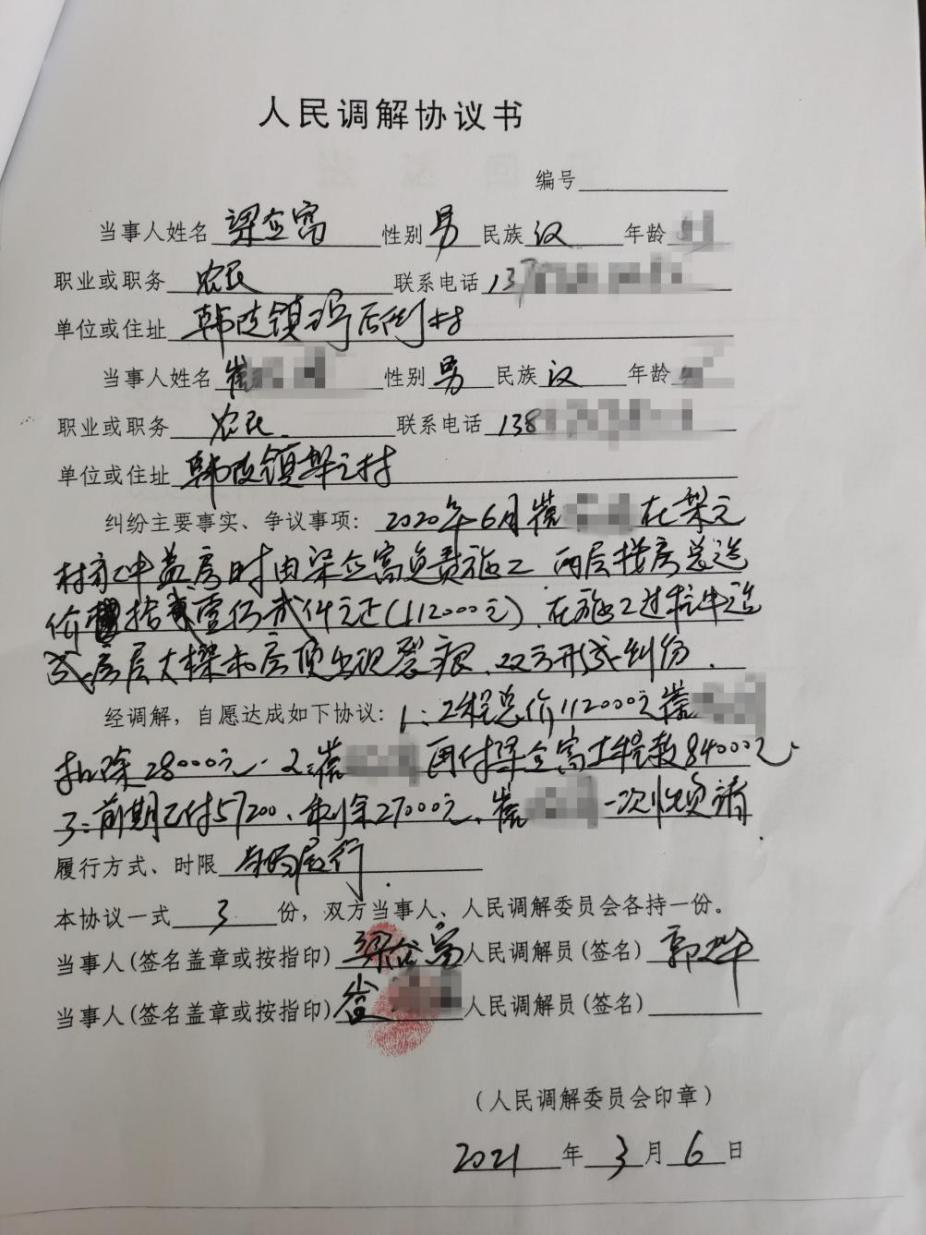 人民调解协议书
编号
当事人姓名 梁 富 性别 男 民族 汉 年龄
职业或职务 农民 联系电话 137
单位或住址 韩陵镇 后街村
当事人姓名 崔 性别 男 民族 汉 年龄
职业或职务 农民 联系电话 138
单位或住址 韩陵镇 村
纠纷主要事实、争议事项: 2020年6月崔 在
村 中盖房时由梁 富负责施工 两层楼房总造
价 拾 壹仟贰仟元正(112000元). 在施工过程中造
成房屋大梁和房顶出现裂痕. 双方形成纠纷.
经调解，自愿达成如下协议: 1:工程总价112000元崔
扣除28000元. 2:崔 再付梁 富工程款84000元.
3:前期已付57200、剩余27000元、崔 一次性 清
履行方式、时限 履行.
本协议一式 3 份，双方当事人、人民调解委员会各持一份。
当事人(签名盖章或按指印) 梁 富 人民调解员(签名) 郭
当事人(签名盖章或按指印) 崔 人民调解员(签名)
(人民调解委员会印章)
2021 年 3 月 6 日